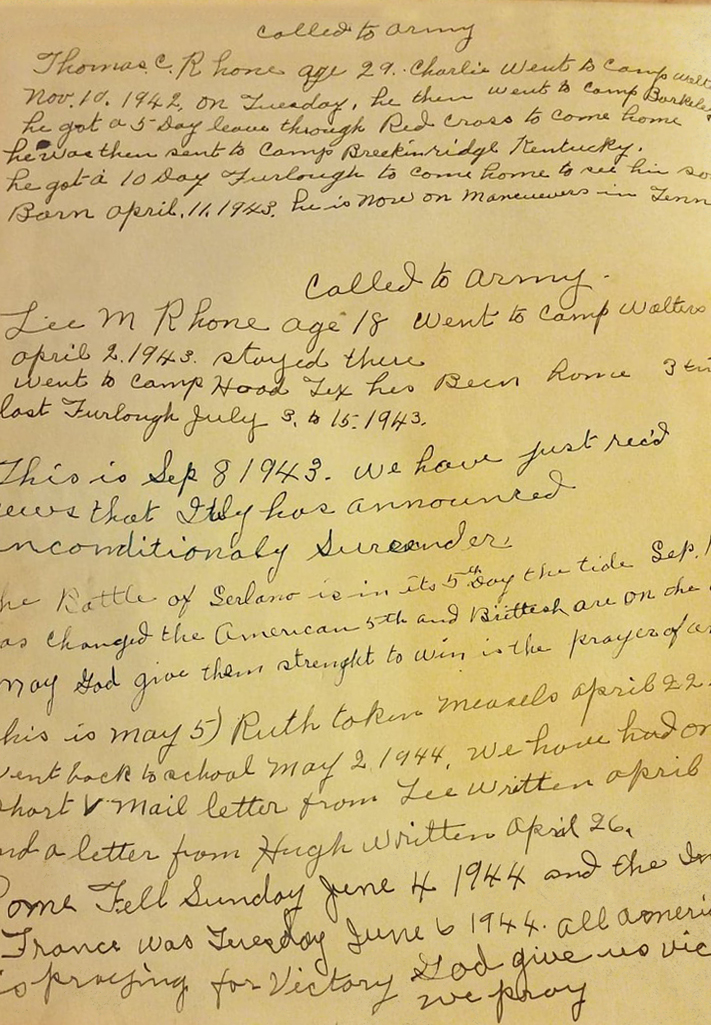 called to army
Thomas. C. Rhone age 29. Charlie Went to Camp
Nov. 10. 1942. on Tuesday. he then went to Camp Barkeley
he got a 5 Day leave through Red Cross to come home
he was then sent to Camp Breckinridge Kentucky.
he got a 10 Day Furlough to come home to see his
Born April. 11. 1943. he is now on Maneuvers in Tenn
Called to army.
Lee M Rhone age 18 Went to Camp Walters
april 2. 1943. stayed there
Went to Camp Hood Tex hes Been home 3
last Furlough July 3. to 15. 1943.
This is Sep 8 1943. We have just rec'd
news that Italy has announced
unconditionaly Surrender.
The Battle of Serlano is in its 5th Day the tide Sep.
has changed the American 5th and Brittesh are on the
may God give them strenght to win is the prayer of
This is may 5) Ruth taken Measels april 22.
went back to school May 2 1944. We have had
short V Mail letter from Lee Written april
and a letter from Hugh Written April 26.
Rome Fell Sunday June 4 1944 and the
France was Tuesday June 6 1944. all
is praying for Victory God give us
we pray